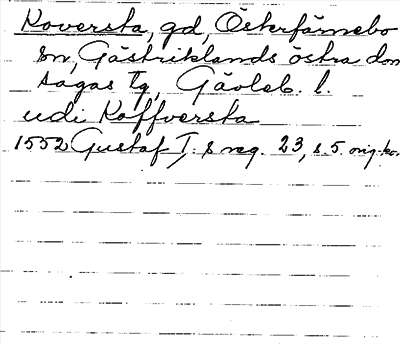 Koversta, gd, Österfärnebo
sn, Gästriklands östra dom
sagas tg, Gävleb. l.
udi Koffversta
1552 Gustaf I:s reg. 23, s. 5. orig.